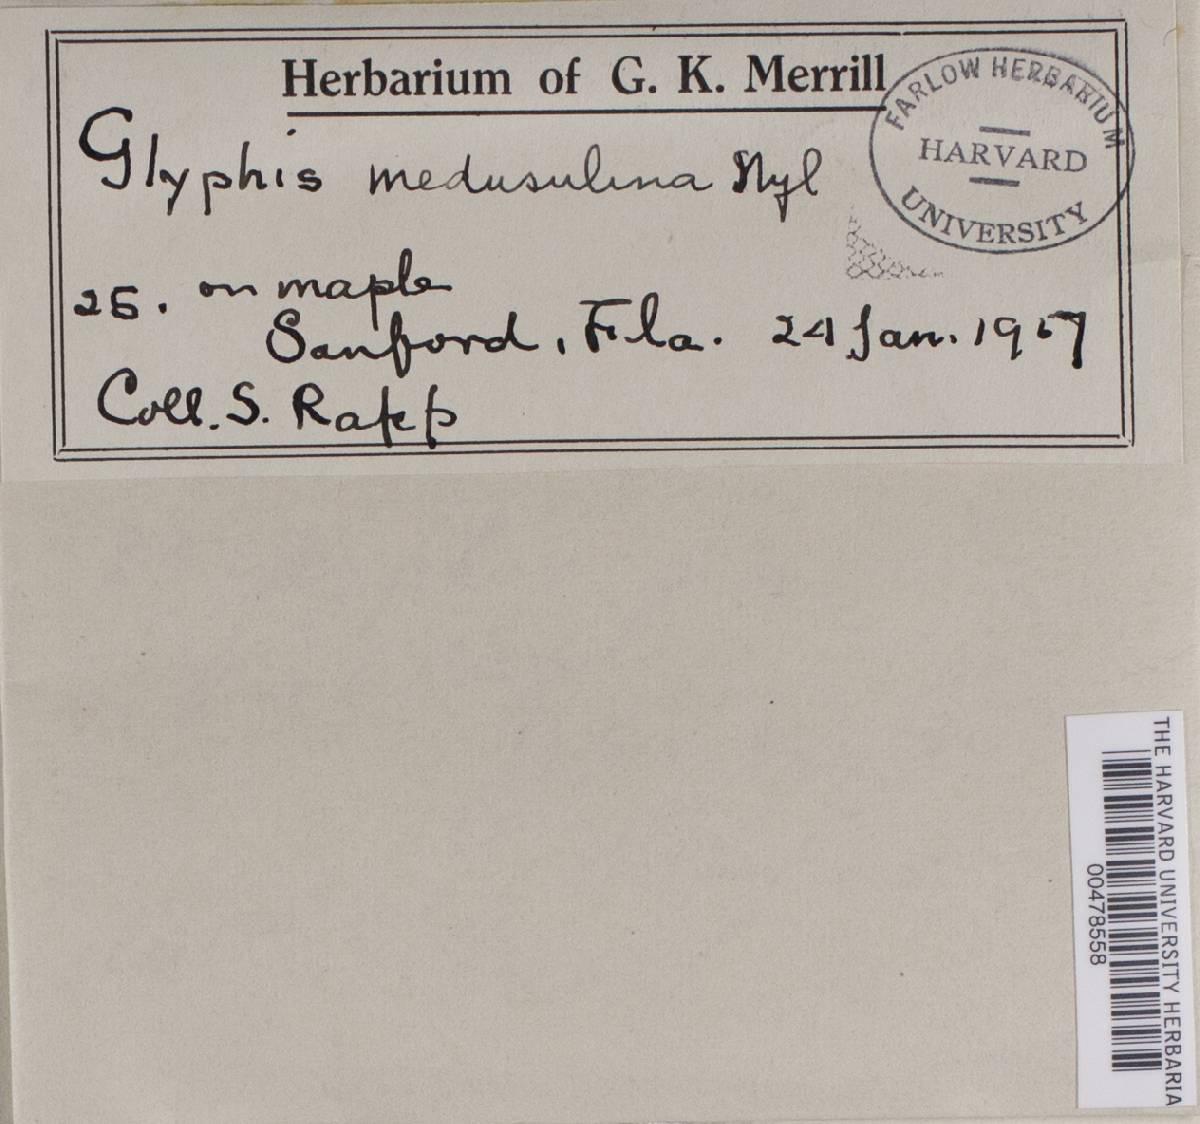 Herbarium of G. K. Merrill
FARLOW HERBARIUM
HARVARD
UNIVERSITY
Glyphis medusulina Nyl
25. on maple
Sanford, Fla. 24 Jan. 1907
Coll. S. Rapp
THE HARVARD UNIVERSITY HERBARIA
00478558